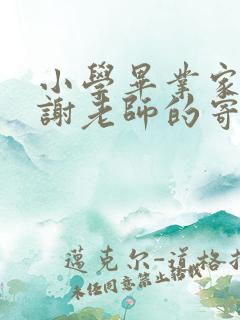 小學畢業家
謝老師的寄
邁克尔-道格拉
未任同意禁止轉載